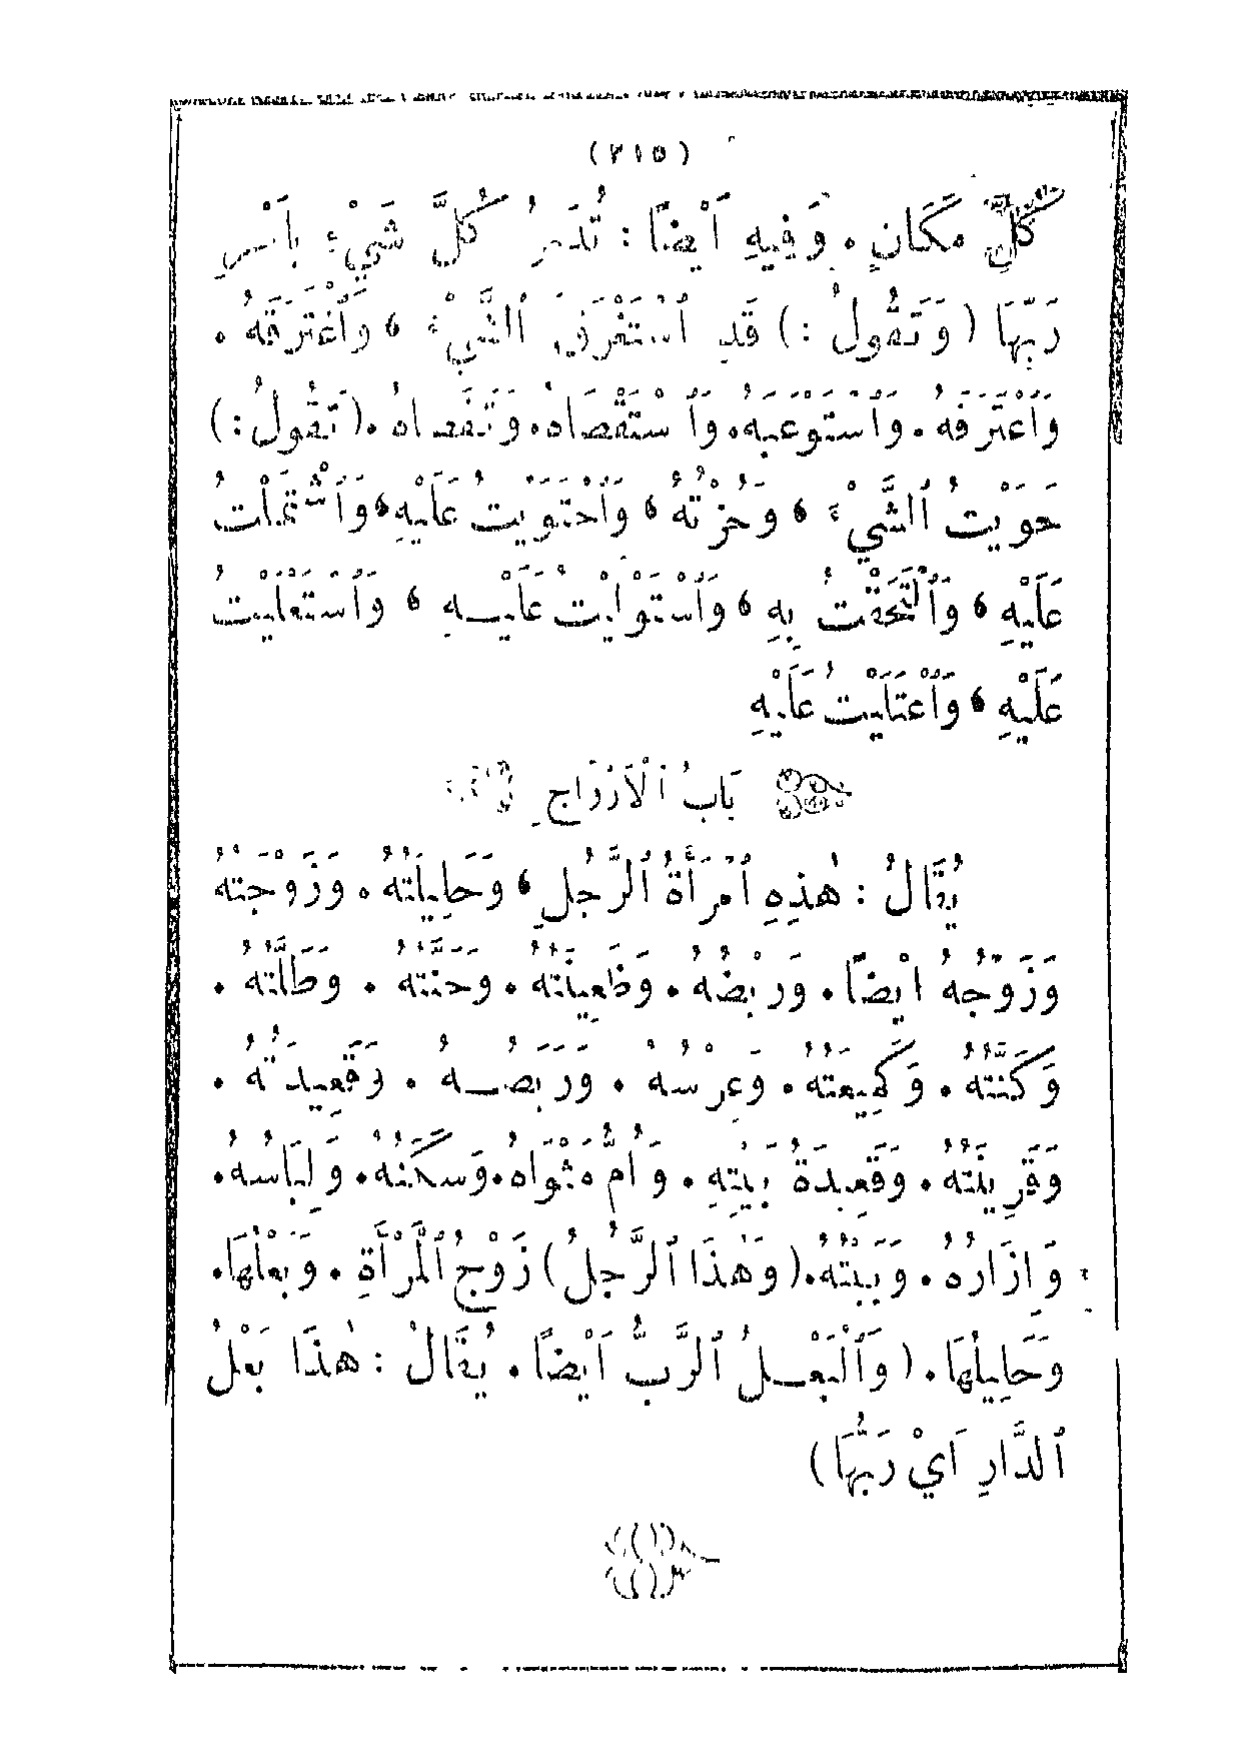 (٢١٥)
كُلِّ مَكَانٍ . وَفِيهِ اَيْضًا : تُدَمِّرُ كُلَّ شَيْءٍ بِاَمْرِ
رَبِّهَا (وَتَقُولُ :) قَدِ ٱسْتَغْرَقَ ٱلشَّيْءَ ، وَٱغْتَرَقَهُ .
وَٱعْتَرَفَهُ . وَٱسْتَوْعَبَهُ . وَٱسْتَقْصَاهُ . وَتَقَصَّاهُ . (تَقُولُ :)
حَوَيْتُ ٱلشَّيْءَ ، وَحُزْتُهُ ، وَٱحْتَوَيْتُ عَلَيْهِ ، وَٱشْتَمَلْتُ
عَلَيْهِ ، وَٱلْتَحَفْتُ بِهِ ، وَٱسْتَوْلَيْتُ عَلَيْهِ ، وَٱسْتَعْلَيْتُ
عَلَيْهِ ، وَٱعْتَلَيْتُ عَلَيْهِ
بَابُ ٱلْاَزْوَاجِ
يُقَالُ : هٰذِهِ ٱمْرَأَةُ ٱلرَّجُلِ ، وَحَلِيلَتُهُ . وَزَوْجَتُهُ
وَزَوْجُهُ اَيْضًا . وَرَبْضُهُ . وَظَعِينَتُهُ . وَحَنَّتُهُ . وَطَلَّتُهُ .
وَكَنَّتُهُ . وَكَمِيعَتُهُ . وَعِرْسُهُ . وَرَبَضُهُ . وَقَعِيدَتُهُ .
وَقَرِينَتُهُ . وَقَعِيدَةُ بَيْتِهِ . وَاُمُّ مَثْوَاهُ . وَسَكَنُهُ . وَلِبَاسُهُ .
وَاِزَارُهُ . وَبَيْتُهُ . (وَهٰذَا ٱلرَّجُلُ) زَوْجُ ٱلْمَرْأَةِ . وَبَعْلُهَا .
وَحَلِيلُهَا . (وَٱلْبَعْلُ ٱلرَّبُّ اَيْضًا . يُقَالُ : هٰذَا بَعْلُ
ٱلدَّارِ اَيْ رَبُّهَا)